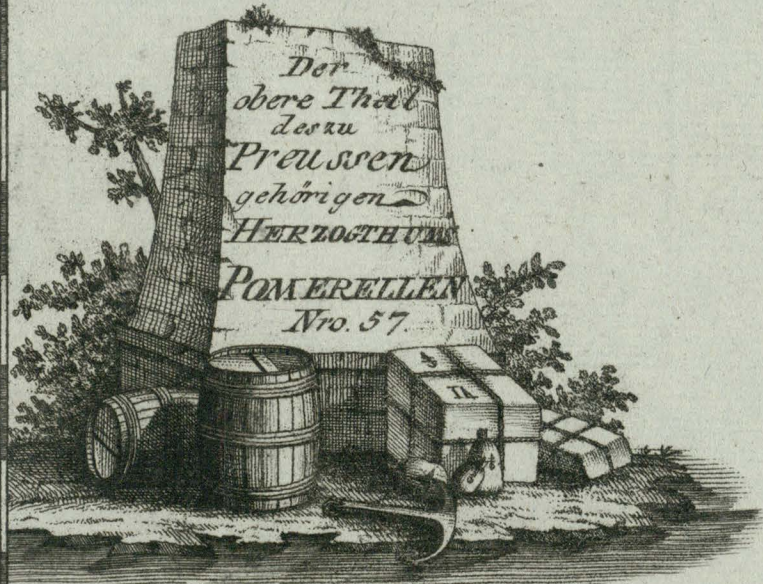 Der
obere Theil
des zu
Preussen
gehörigen
HERZOGTHUMS
POMERELLEN
Nro. 57